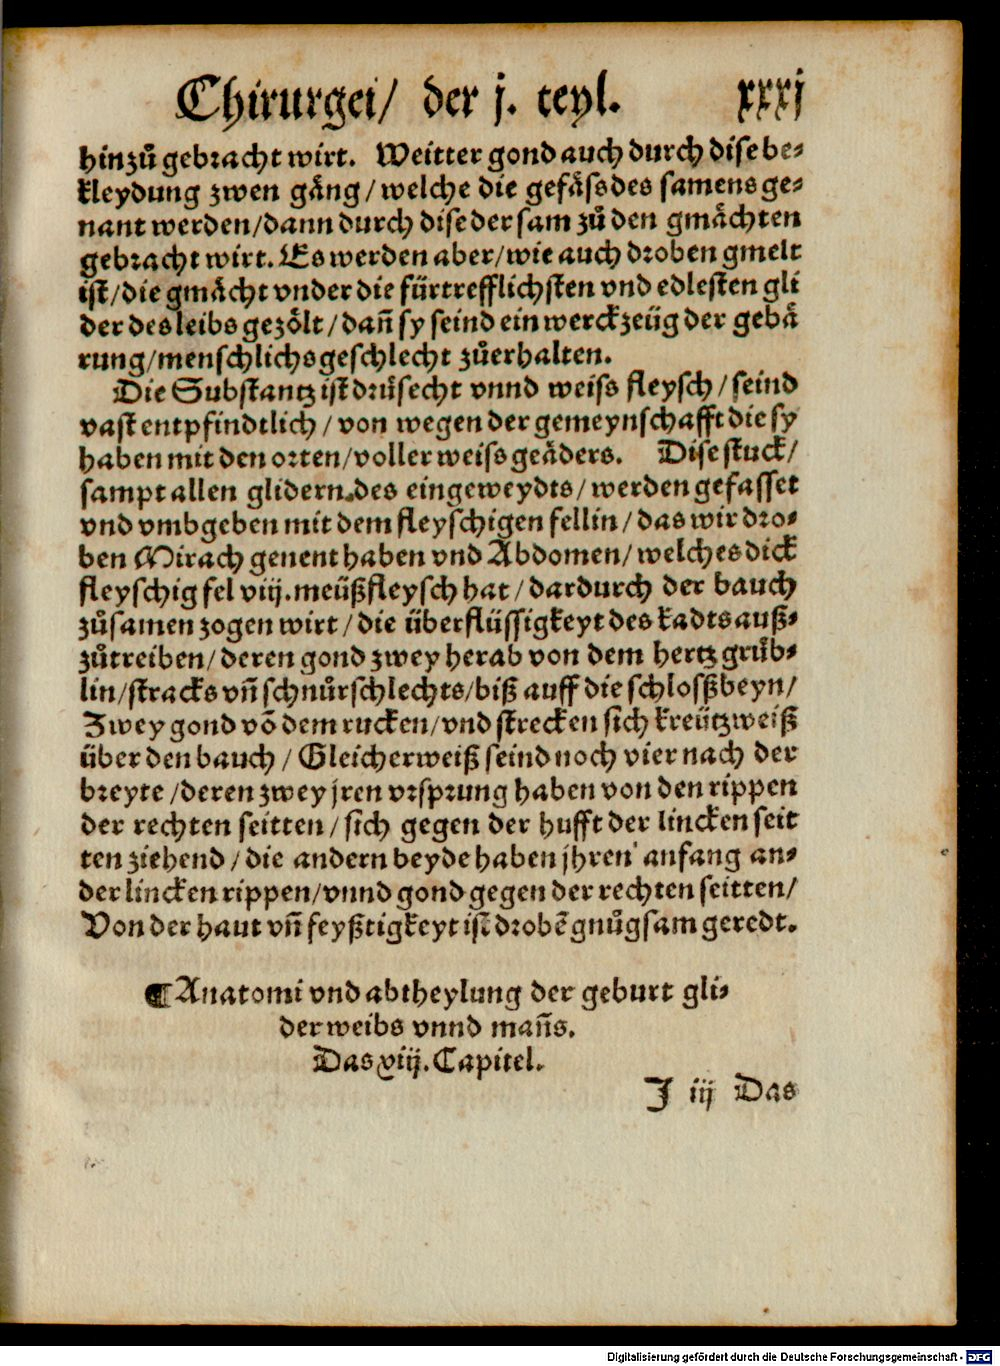 Chirurgei/ der j. teyl. xxxj
hinzů gebracht wirt. Weitter gond auch durch dise be-
kleydung zwen gäng/welche die gefäss des samens ge-
nant werden/dann durch dise der sam zů den gmächten
gebracht wirt. Es werden aber/wie auch droben gmelt
ist/die gmächt vnder die fürtrefflichsten vnd edlesten gli
der des leibs gezölt/dañ sy seind ein werckzeüg der gebä
rung/menschlichs geschlecht zůerhalten.
Die Substantz ist drůsecht vnnd weiss fleysch/seind
vast entpfindtlich/von wegen der gemeynschafft die sy
haben mit den orten/voller weiss geäders. Dise stuck/
sampt allen glidern des eingeweydts/werden gefasset
vnd vmbgeben mit dem fleyschigen fellin/das wir dro-
ben Mirach genent haben vnd Abdomen/welches dick
fleyschig fel viij. meüßfleysch hat/dardurch der bauch
zůsamen zogen wirt/die überflüssigkeyt des kadts auß-
zůtreiben/deren gond zwey herab von dem hertz grůb-
lin/stracks vñ schnůrschlechts/biß auff die schlosßbeyn/
Zwey gond võ dem rucken/vnd strecken sich kreützweiß
über den bauch/Gleicherweiß seind noch vier nach der
breyte/deren zwey jren vrsprung haben von den rippen
der rechten seitten/sich gegen der hufft der lincken seit
ten ziehend/die andern beyde haben jhren anfang an-
der lincken rippen/vnnd gond gegen der rechten seitten/
Von der haut vñ feyßtigkeyt ist drobẽ gnůgsam geredt.
¶Anatomi vnd abtheylung der geburt gli-
der weibs vnnd mañs.
Das viij. Capitel.
J iij Das
Digitalisierung gefördert durch die Deutsche Forschungsgemeinschaft - DFG